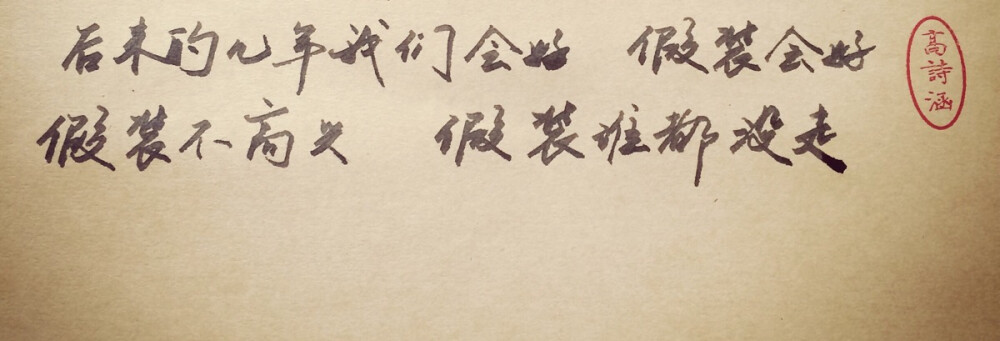 后来的几年我们会好 假装会好
假装不高兴 假装谁都没走
高詩涵